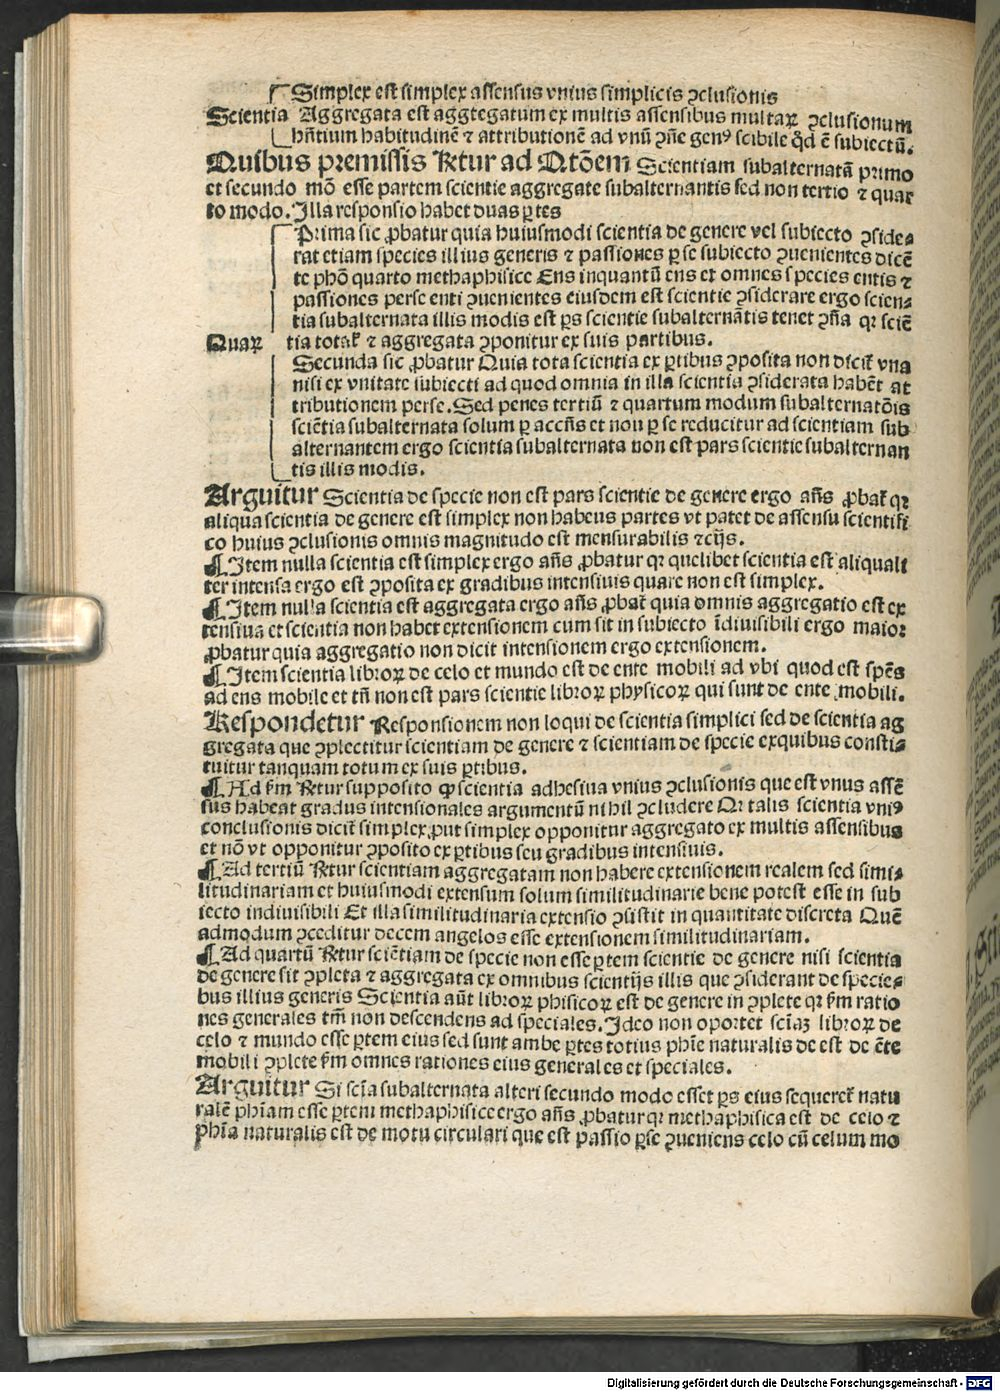 Simplex est simplex assensus vnius simplicis ꝯclusionis
Scientia Aggregata est aggregatum ex multis assensibus multaꝝ ꝯclusionum
hñtium habitudinē ⁊ attributionē ad vnū ꝯñe genꝰ scibile qd̓ ē subiectū.
Quibus premissis Rr̃tur ad Q̃tōem Scientiam subalternatā primo
et secundo mō esse partem scientie aggregate subalternantis sed non tertio ⁊ quar
to modo. Illa responsio habet duas ꝑtes
Prima sic ꝓbatur quia huiusmodi scientia de genere vel subiecto ꝯside⸗
rat etiam species illius generis ⁊ passiones ꝑ se subiecto ꝯuenientes dicē
te phō quarto methaphisice Ens inquantū ens et omnes species entis ⁊
passiones perse enti ꝯuenientes eiusdem est scientie ꝯsiderare ergo scien⸗
tia subalternata illis modis est ꝑs scientie subalternātis tenet ꝯña qꝛ sciē
Quaꝝ tia total̓ ⁊ aggregata ꝯponitur ex suis partibus.
Secunda sic ꝓbatur Quia tota scientia ex ꝑtibus ꝯposita non dicit̃ vna
nisi ex vnitate subiecti ad quod omnia in illa scientia ꝯsiderata habēt at
tributionem perse. Sed penes tertiū ⁊ quartum modum subalternatōis
sciētia subalternata solum ꝑ accñs et non ꝑ se reducitur ad scientiam sub
alternantem ergo scientia subalternata non est pars scientie subalternan
tis illis modis.
Arguitur Scientia de specie non est pars scientie de genere ergo añs ꝓbat̃ qꝛ
aliqua scientia de genere est simplex non habens partes vt patet de assensu scientifi
co huius ꝯclusionis omnis magnitudo est mensurabilis ⁊cijs.
¶ Item nulla scientia est simplex ergo añs ꝓbatur qꝛ quelibet scientia est aliquali
ter intensa ergo est ꝯposita ex gradibus intensiuis quare non est simplex.
¶ Item nulla scientia est aggregata ergo añs ꝓbat̃ quia omnis aggregatio est ex
tensiua et scientia non habet extensionem cum sit in subiecto īdiuisibili ergo maior
ꝓbatur quia aggregatio non dicit intensionem ergo extensionem.
¶ Item scientia libroꝝ de celo et mundo est de ente mobili ad vbi quod est spēs
ad ens mobile et tñ non est pars scientie libroꝝ physicoꝝ qui sunt de ente mobili.
Respondetur Responsionem non loqui de scientia simplici sed de scientia ag
gregata que ꝯplectitur scientiam de genere ⁊ scientiam de specie exquibus consti⸗
tuitur tanquam totum ex suis ꝑtibus.
¶ Ad s̃m Rr̃tur supposito ꝙ scientia adhesiua vnius ꝯclusionis que est vnus assē
sus habeat gradus intensionales argumentū nihil ꝯcludere Qꝛ talis scientia vniꝰ
conclusionis dicit̃ simplex ꝓut simplex opponitur aggregato ex multis assensibus
et nō vt opponitur ꝯposito ex ꝑtibus seu gradibus intensiuis.
¶ Ad tertiū Rr̃tur scientiam aggregatam non habere extensionem realem sed simi⸗
litudinariam et huiusmodi extensum solum similitudinarie bene potest esse in sub
iecto indiuisibili Et illa similitudinaria extensio ꝯsistit in quantitate discreta Quē
admodum ꝯceditur decem angelos esse extensionem similitudinariam.
¶ Ad quartū Rr̃tur sciētiam de specie non esse ꝑtem scientie de genere nisi scientia
de genere sit ꝯpleta ⁊ aggregata ex omnibus scientijs illis que ꝯsiderant de specie⸗
bus illius generis Scientia aūt libroꝝ phisicoꝝ est de genere in ꝯplete qꝛ s̃m ratio
nes generales tm̃ non descendens ad speciales. Ideo non oportet sciaꝫ libroꝝ de
celo ⁊ mundo esse ꝑtem eius sed sunt ambe ꝑtes totius phīe naturalis de est de ēte
mobili ꝯplete s̃m omnes rationes eius generales et speciales.
Arguitur Si scīa subalternata alteri secundo modo esset ꝑs eius sequeret̃ natu
ralē phīam esse ꝑtem methaphisice ergo añs ꝓbatur qꝛ methaphisica est de celo ⁊
phīa naturalis est de motu circulari que est passio ꝑse ꝯueniens celo cū celum mo
Digitalisierung gefördert durch die Deutsche Forschungsgemeinschaft - DFG